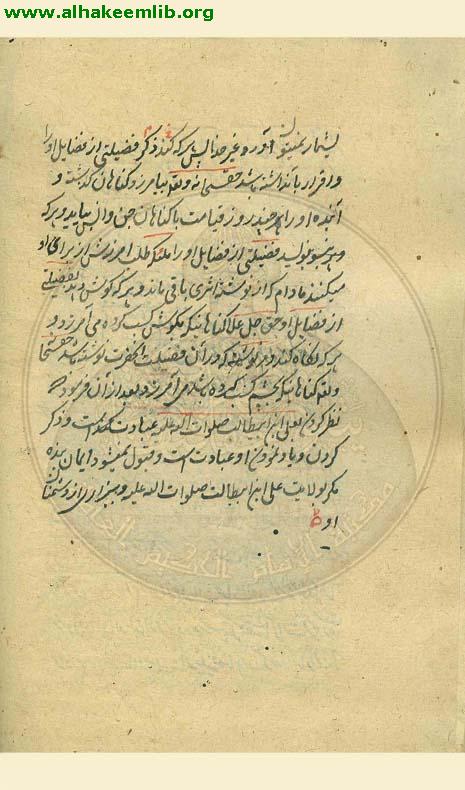 www.alhakeemlib.org
بشمار نمیتوان آورد غیر خدا پس هر که کند ذکر فضیلتی از فضایل او را
و اقرار بآن داشته باشد حقتعالی گناهان گذشته و
آینده او را هر چند روز قیامت با گناهان جن و انس بیاید و هر که
بنویسد فضیلتی از فضایل او را ملائکه طلب آمرزش از برای او
میکنند مادام که از نوشته اثری باقی ماند و هر که گوش دهد بفضیلتی
از فضایل او حق جل و علا گناهانیکه بگوش کسب کرده می آمرزد و
هر که نگاه کند در نوشته که در آن فضیلت آنحضرت نوشته باشد حقتعالی
گناهانیکه بچشم کسب کرده باشد می آمرزد و بعد از آن فرمود که
نظر کردن بعلی ابن ابیطالب صلوات الله علیه عبادتست و ذکر
کردن و یاد نمودن او عبادت است و قبول نمیشود ایمان بنده
مگر بولایت علی ابن ابیطالب صلوات الله علیه و بیزاری از دشمنان
او